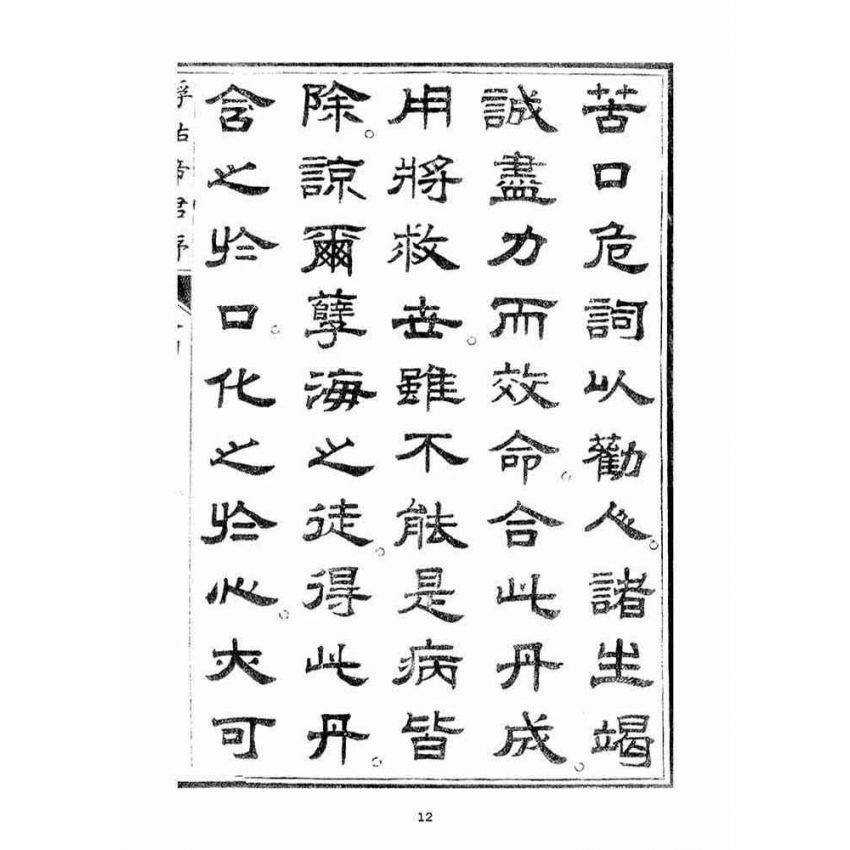 苦口危詞以勸人。諸生竭
誠盡力而效命。合此丹成。
用將救世。雖不能是病皆
除。諒爾孽海之徒。得此丹。
含之於口。化之於心。亦可
孚佑帝君序
12